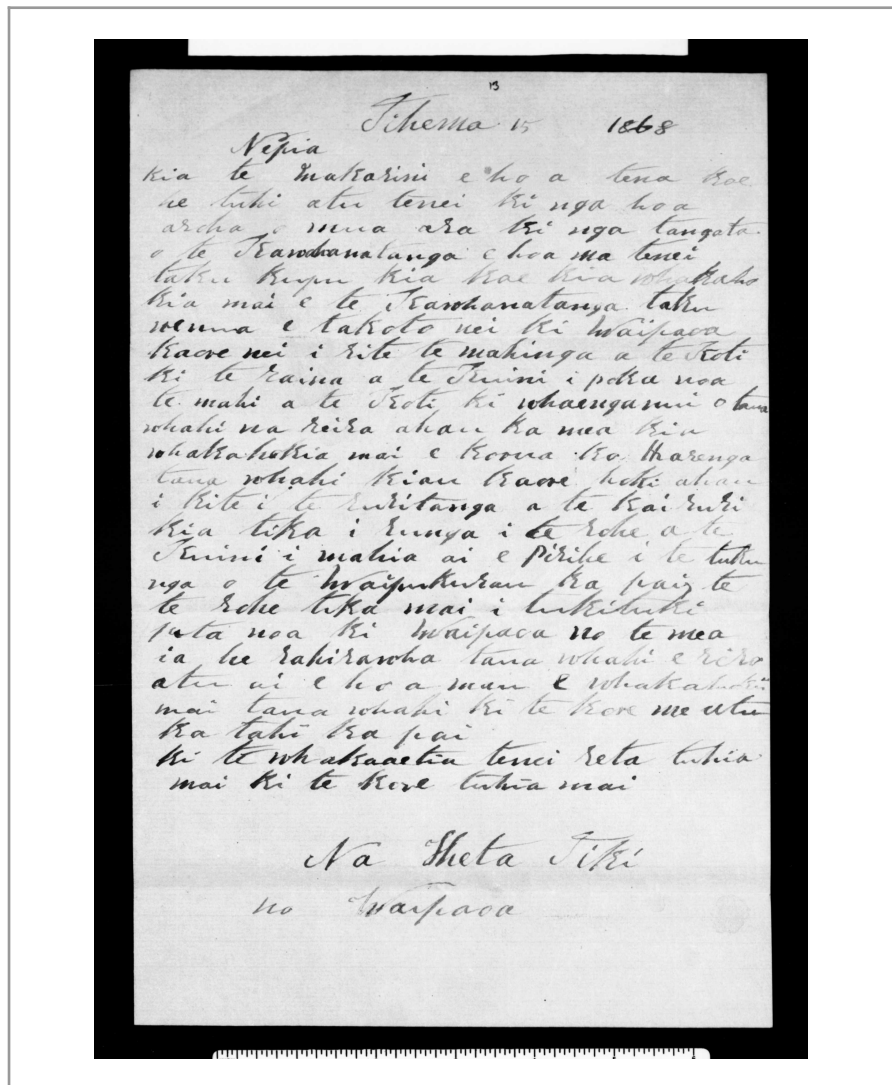 13
Tihema 15 1868
Nepia
Kia te Makarini e ho a tena koe
he tuhi atu tenei ki nga hoa
aroha o mua ara ki nga tangata
o te Kawhanatanga e hoa ma tenei
taku kupu kia koe kia whakaho
kia mai e te Kawhanatanga taku
wenua e takoto nei ki Waipaoa
kaore nei i rite te mahinga a te Koti
ki te raina a te Kuini i poka noa
te mahi a te Koti ki whaenganui o taua
whahi na reira ahau ka mea kia
whakahokia mai e korua ko
taua whahi kiau kaore hoki ahau
i kite i te ruritanga a te kai ruri
kia tika i runga i te rohe a te
Kuini i mahia ai e Pirihe i te tuku
nga o te Waipukurau ka pai te
te rohe tika mai i tukituki
puta noa ki Waipaoa no te mea
ia he rahirawha taua whahi e riro
atu ai e ho a mau e whakahokii
mai taua whahi ki te kore me utu
ka tahi ka pai
ki te whakaaetia tenei reta tuhia
mai ki te kore tuhia mai
Na Heta Tiki
no Waipaoa